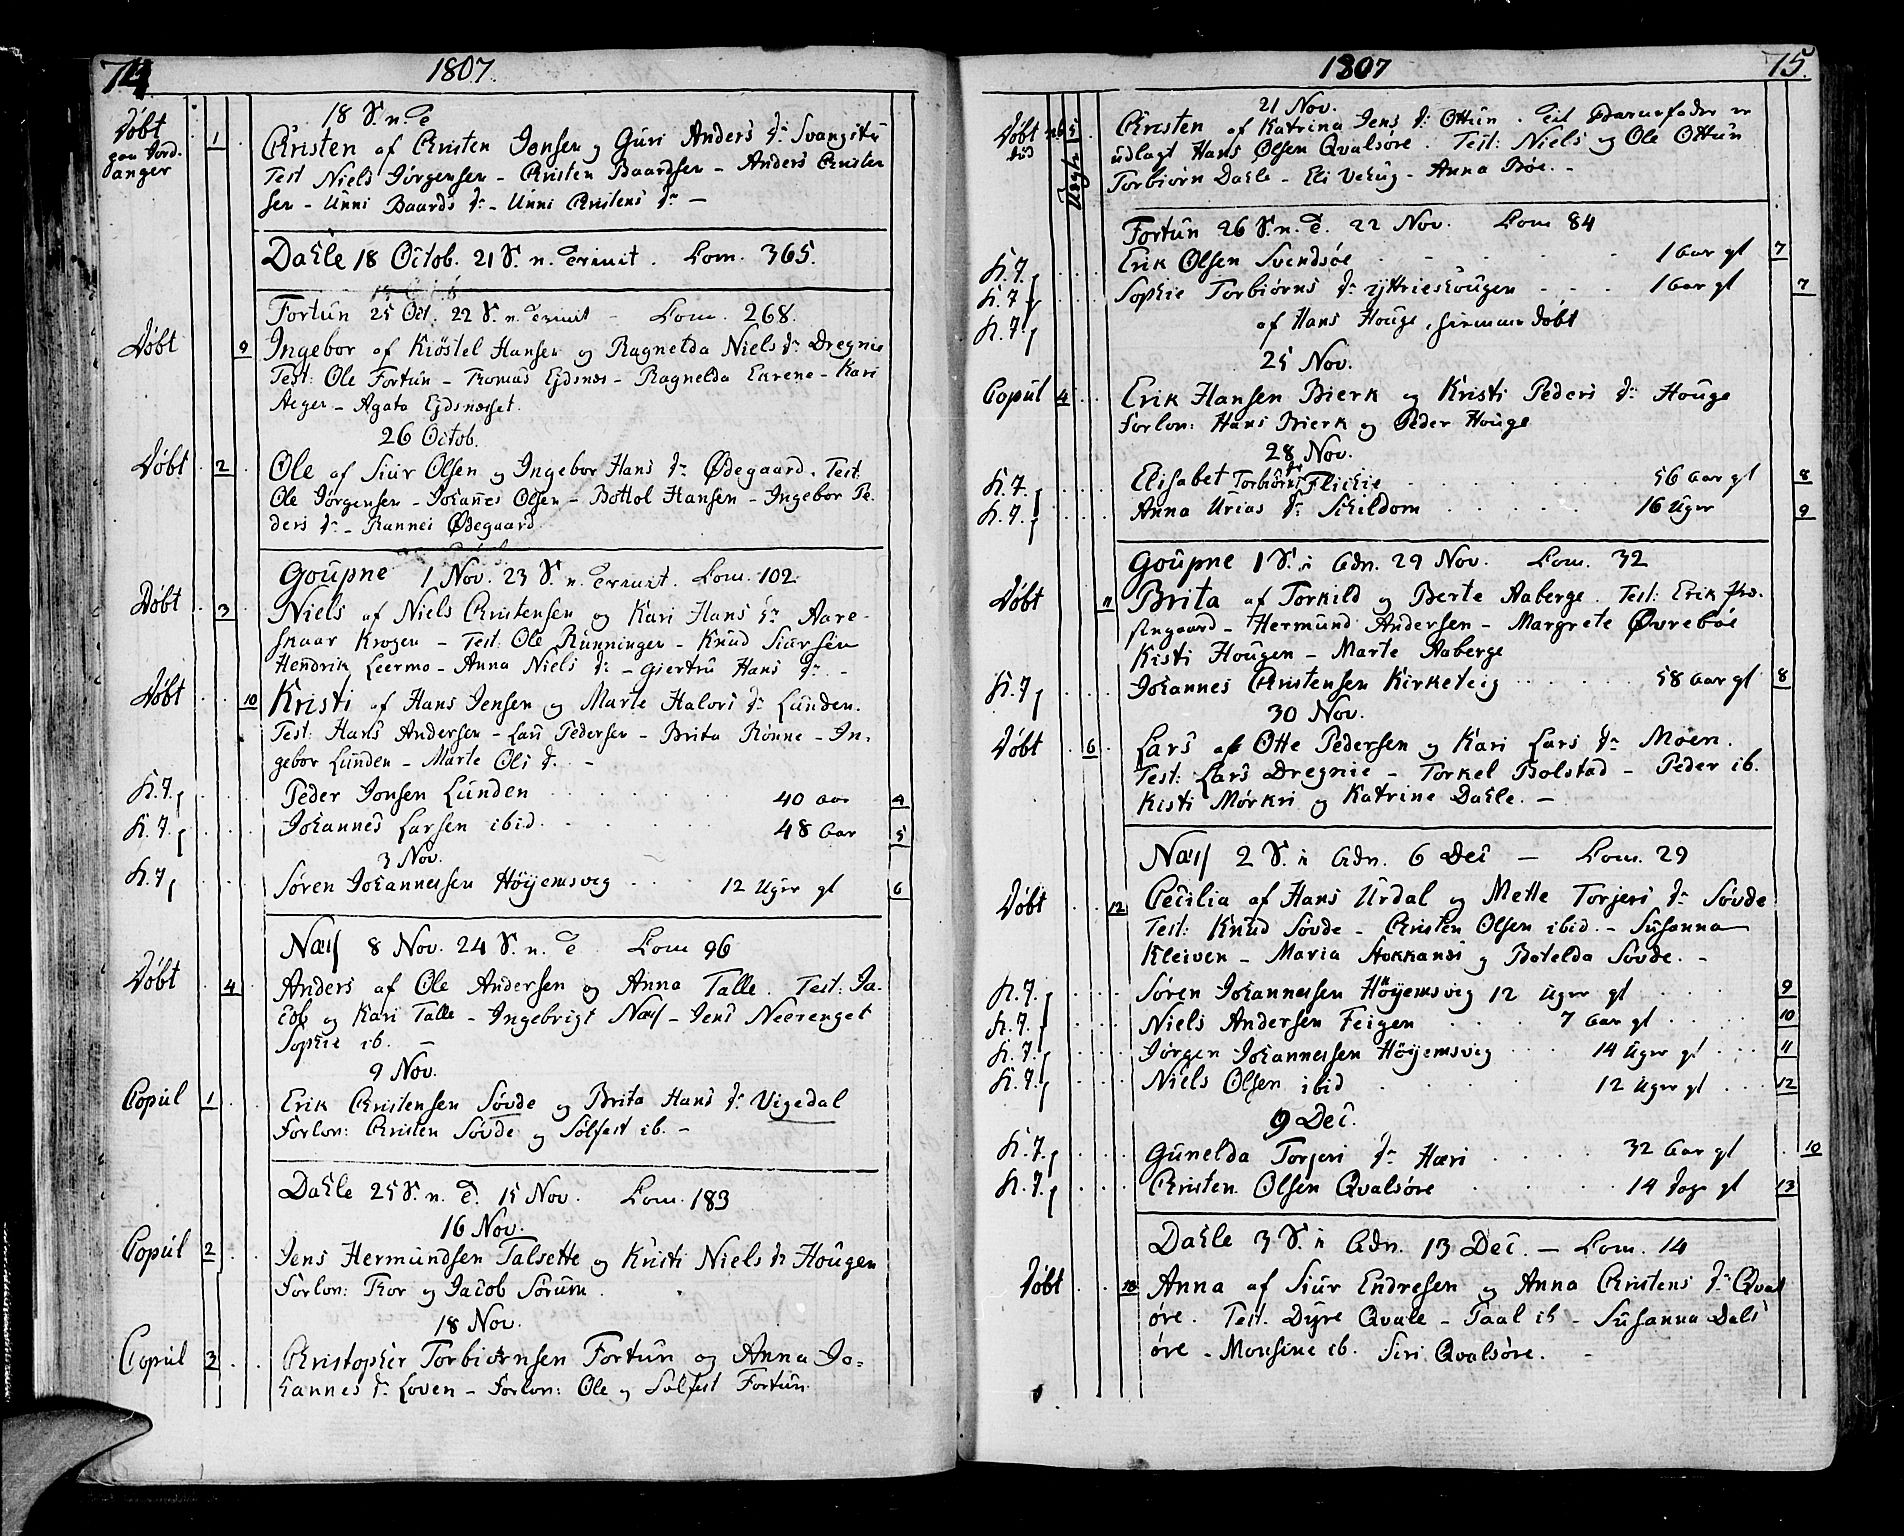 74
1807
18 S. n. T
Døbt
paa Jord-
anger
1
Christen af Christen Jonsen og Guri Anders Dr Svangstu
Test Niels Jørgensen - Christen Baardsen - Anders Christen
sen - Unni Baards Dr - Unni Christens Dr -
Dahle 18 Octob. 21 S. n. Trinit. Com. 365.
Fortun 25 Oct. 22 S. n. Trinit - Com. 268.
Døbt 9 Ingebor af Kiøstel Hansen og Ragnelda Niels Dr Dregnie
Test: Ole Fortun - Thomas Ejdsnæs - Ragnelda Ekrene - Kari
Æger - Agata Ejdsnæsset.
26 Octob.
Døbt 2 Ole af Siur Olsen og Ingebor Hans Dr Ødegaard. Test.
Ole Jørgensen - Johannes Olsen - Bottol Hansen - Ingebor Pe-
ders Dr - Rannei Ødegaard
Goupne 1 Nov. 23 S. n. Trinit. Com. 102.
Døbt 3 Niels af Niels Christensen og Kari Hans Dr Aare-
skaar Krogen - Test: Ole Rønninger - Knud Siursen
Hendrik Leermo - Anna Niels Dr - Gjertru Hans Dr -
Døbt 10 Kristi af Hans Jensen og Marte Halvors Dr Lunden.
Test: Hans Andersen - Lau Pedersen - Brita Rønne - In-
gebor Lunden - Marte Ols Dr -
Peder Jonsen Lunden 40 aar 4
Johannes Larsen ibid. 48 Aar 5
3 Nov.
Søren Johannessen Høyemsvig 12 Uger gl 6
Næs 8 Nov. 24 S. n. T Com 96
Døbt 4 Anders af Ole Andersen og Anna Talle. Test: Ja-
cob og Kari Talle - Ingebrigt Næs - Jens Neerenget
Sophie ib. -
9 Nov.
Copul 1 Erik Christensen Søvde og Brita Hans Dr Vigedal
Forlov: Christen Søvde og Sølfest ib. -
Dahle 25 S. n. T. 15 Nov. Com. 183
16 Nov.
Copul 2 Jens Hermundsen Talsette og Kristi Niels Dr Hougen
Forlov: Thor og Jacob Sorum.
18 Nov.
Copul 3 Christopher Torbiørnsen Fortun og Anna Jo-
hannes Dr Loven - Forlov: Ole og Solfest Fortun.
1807
75.
21 Nov.
Døbt
Uægte
5
Christen af Katrina Jens Dr Ottun. Til Barnefader er
udlagt Hans Olsen Qvalsøre. Test: Niels og Ole Ottun
Torbiørn Dahle - Eli - Anna Bøe. -
Fortun 26 S. n. T. 22 Nov. Com 84
Erik Olsen Svendsøe 1 Aar gl 7
Sophie Torbiørns Dr 1 Aar gl 7
af Hans Houge, hiemme døbt
25 Nov.
Copul 4 Erik Hansen Bierk og Kristi Peders Dr Houge
Forlov: Hans Bierk og Peder Houge
28 Nov.
Elisabet Torbiørns Dr Flichie 56 Aar gl 8
Anna Urias Dr Skildom 16 Uger 9
Goupne 1 S. i Adv. 29 Nov. Com. 32
Døbt 11 Brita af Torkild og Berte Aaberge. Test: Erik
- Hermund Andersen - Margrete Øvrebøe
Kisti Hougen - Marte Aaberge
Johannes Christensen Kirketeig 58 Aar gl 8
30 Nov.
Døbt 6 Lars af Otte Pedersen og Kari Lars Dr Moen.
Test: Lars Dregnie - Torkel Bolstad - Peder ib.
Kisti Mørkri og Katrine Dahle. -
Næs 2 S. i Adv. 6 Dec - Com. 29
Døbt 12 Cecilia af Hans Urdal og Mette Torjers Dr Søvde
Test: Knud Søvde - Christen Olsen ibid. - Susanna
Kleiven - Maria Stokkans og Botelda Søvde. -
Søren Johannessen Høyemsvig 12 Uger gl 9
Niels Andersen Feigen 7 Aar gl 10
Jørgen Johannessen Høyemsvig 14 Uger gl 11
Niels Olsen ibid 12 Uger gl 12
9 Dec.
Gunelda Torjers Dr Hæri 32 Aar gl 10
Christen Olsen Qvalsøre 14 Dage gl 13
Dahle 3 S. i Adv. 13 Dec. - Com. 14
Døbt 13 Anna af Siur Endresen og Anna Christens Dr Qvals
øre. Test. Dyre Qvale - Paal ib - Susanna Dals
øre - Monsine ib. Siri Qvalsøre. -